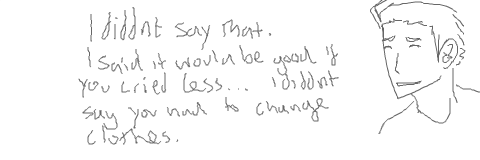 I diddnt say that.
I said it would be good if
you cried less... i diddnt
say you had to change
clothes.